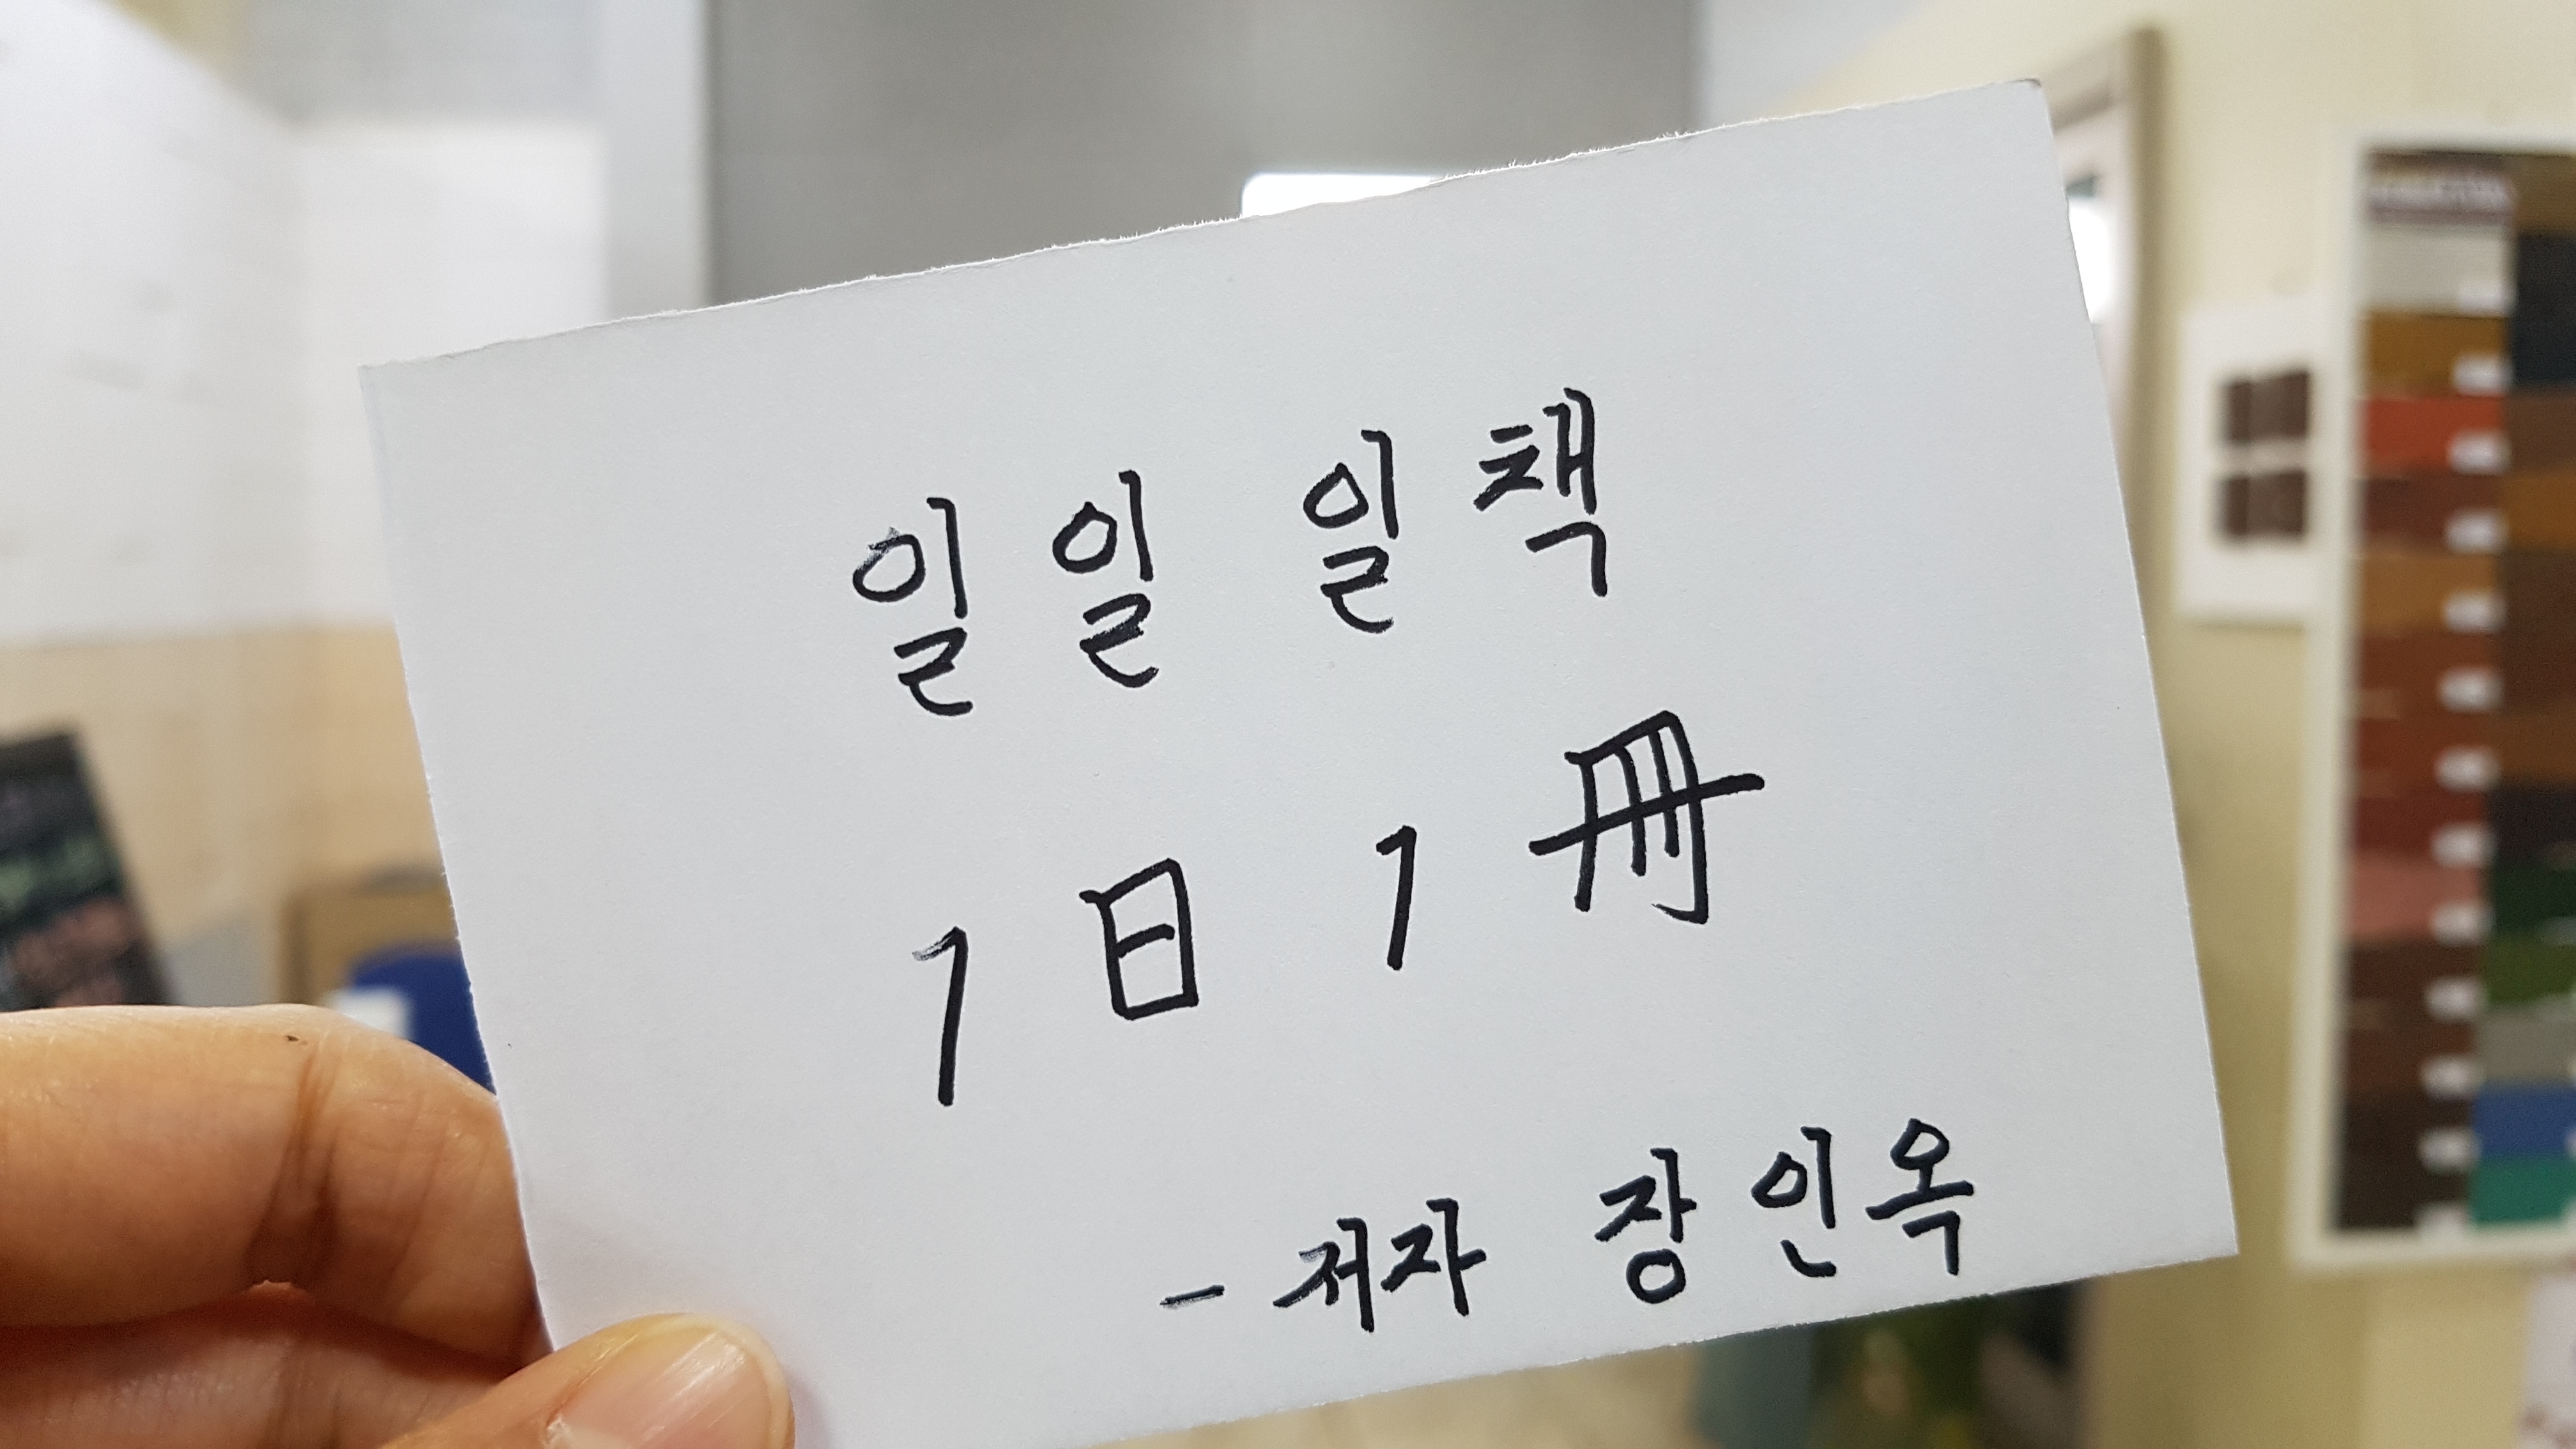 일일 일책
1日 1冊
- 저자 장인옥